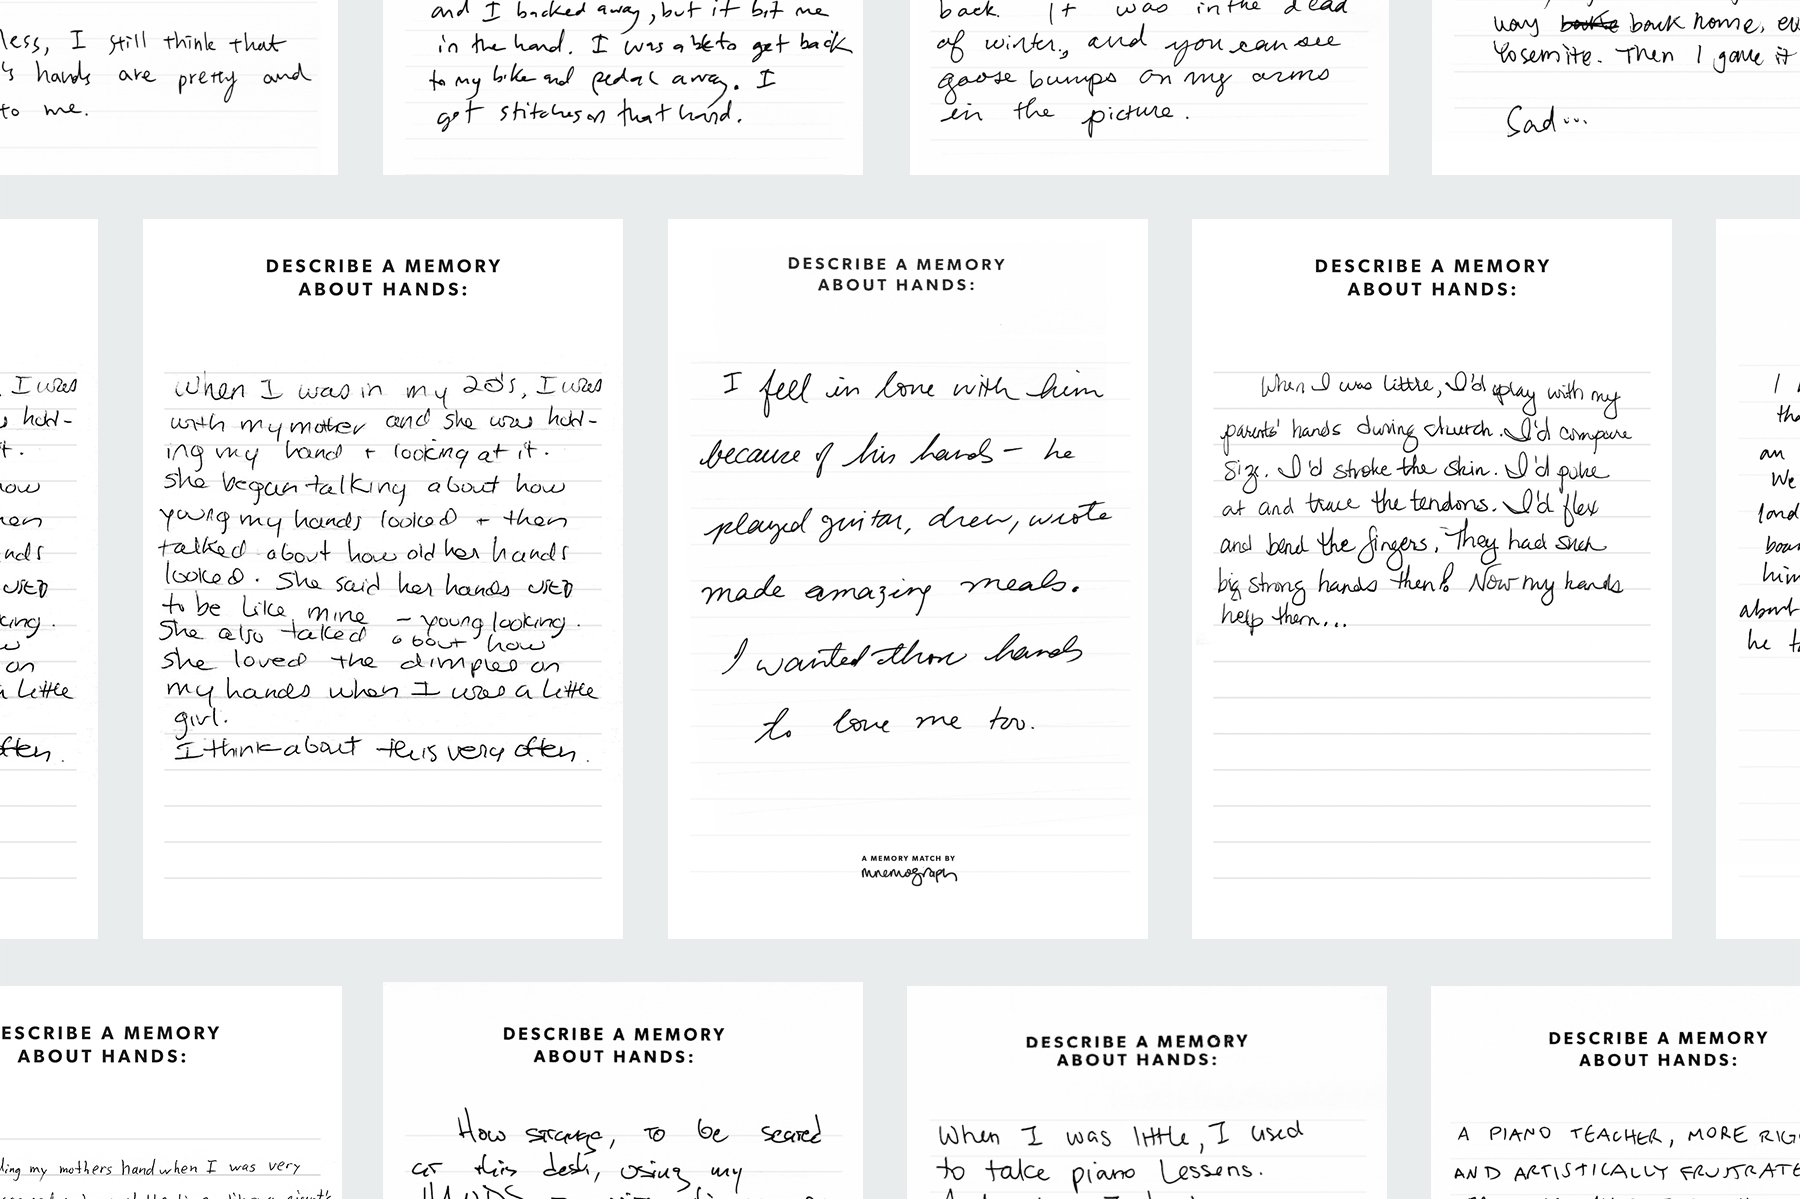 less, I still think that
's hands are pretty and
to me.
and I backed away, but it bit me
in the hand. I was able to get back
to my bike and pedal away. I
got stitches on that hand.
back. It was in the dead
of winter, and you can see
goose bumps on my arms
in the picture.
way back home, ev
Yosemite. Then I gave it
Sad...
, I was
s hold-
t.
how
hen
nds
USED
king.
w
on
a little
often.
DESCRIBE A MEMORY
ABOUT HANDS:
When I was in my 20's, I was
with my mother and she was hold-
ing my hand + looking at it.
She began talking about how
young my hands looked + then
talked about how old her hands
looked. She said her hands USED
to be like mine - young looking.
She also talked about how
she loved the dimples on
my hands when I was a little
girl.
I think about this very often.
DESCRIBE A MEMORY
ABOUT HANDS:
I fell in love with him
because of his hands - he
played guitar, drew, wrote
made amazing meals.
I wanted those hands
to love me too.
A MEMORY MATCH BY
mnemograph
DESCRIBE A MEMORY
ABOUT HANDS:
When I was little, I'd play with my
parents' hands during church. I'd compare
size. I'd stroke the skin. I'd poke
at and trace the tendons. I'd flex
and bend the fingers. They had such
big strong hands then! Now my hands
help them...
I
tha
an
We
land
boar
him
about
he to
ESCRIBE A MEMORY
ABOUT HANDS:
ding my mothers hand when I was very
DESCRIBE A MEMORY
ABOUT HANDS:
How strange, to be seated
at this desk, using my
HANDS
DESCRIBE A MEMORY
ABOUT HANDS:
When I was little, I used
to take piano lessons.
DESCRIBE A MEMORY
ABOUT HANDS:
A PIANO TEACHER, MORE RIG
AND ARTISTICALLY FRUSTRATE